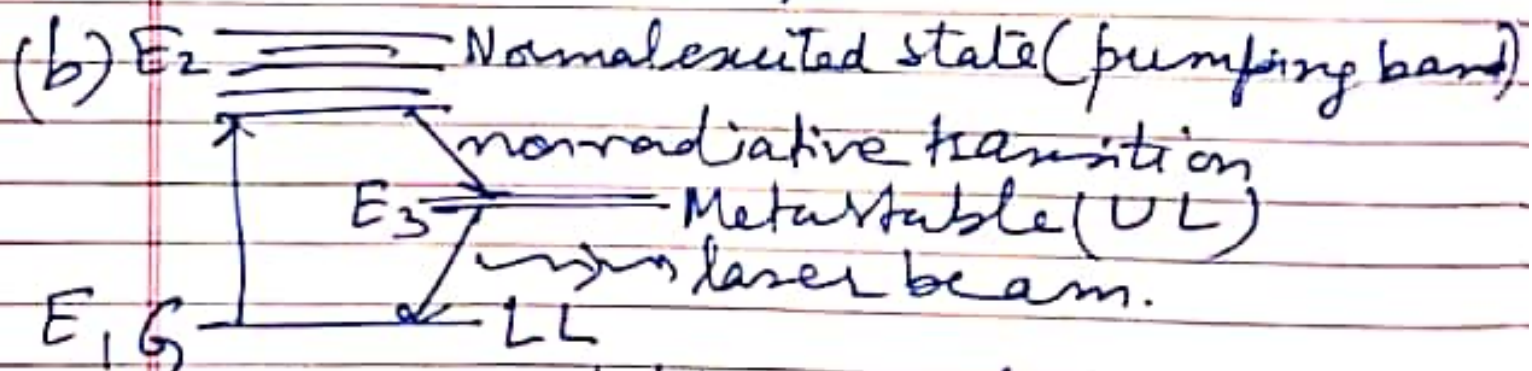 (b) E2 Normal excited state (pumping band)
nonradiative transition
E3 Metastable (UL)
laser beam.
E1 G LL